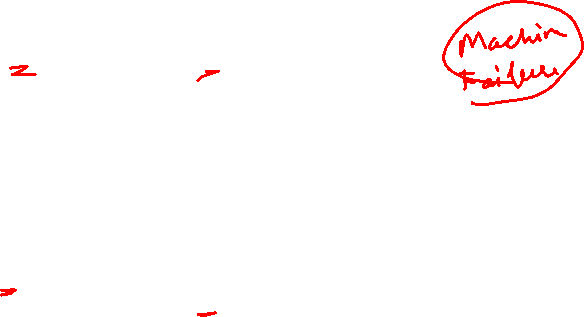 Machin
Failure